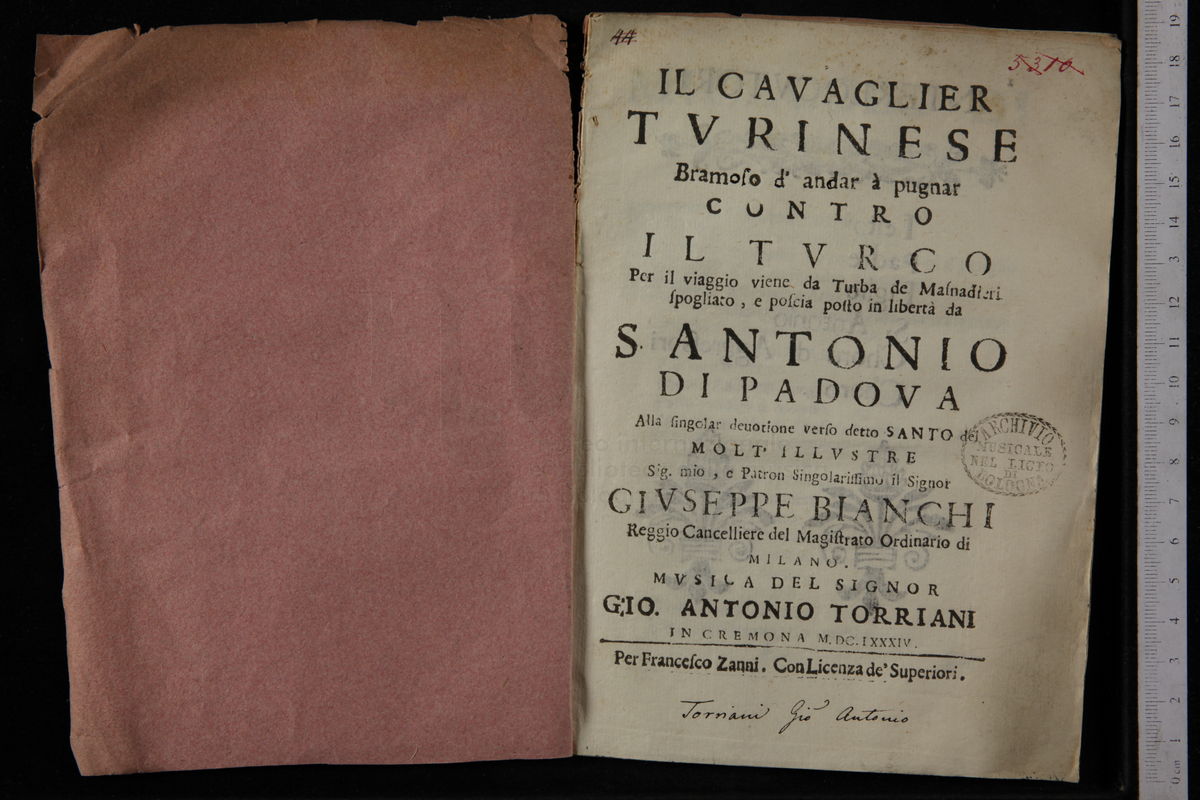 44
5310
IL CAVAGLIER
TVRINESE
Bramoſo d' andar à pugnar
CONTRO
IL TVRCO
Per il viaggio viene da Turba de Maſnadieri
ſpogliato, e poſcia poſto in libertà da
S. ANTONIO
DI PADOVA
Alla ſingolar deuotione verſo detto SANTO del
MOLT' ILLVSTRE
Sig. mio, e Patron Singolariſſimo il Signor
GIVSEPPE BIANCHI
Reggio Cancelliere del Magiſtrato Ordinario di
MILANO.
MVSICA DEL SIGNOR
G;IO. ANTONIO TORRIANI
IN CREMONA M.DC.LXXXIV.
Per Franceſco Zanni. Con Licenza de' Superiori.
Torriani Gio Antonio
ARCHIVIO
MUSICALE
NEL LICEO
DI
BOLOGNA
0 cm 1 2 3 4 5 6 7 8 9 10 11 12 3 14 15 16 17 18 19